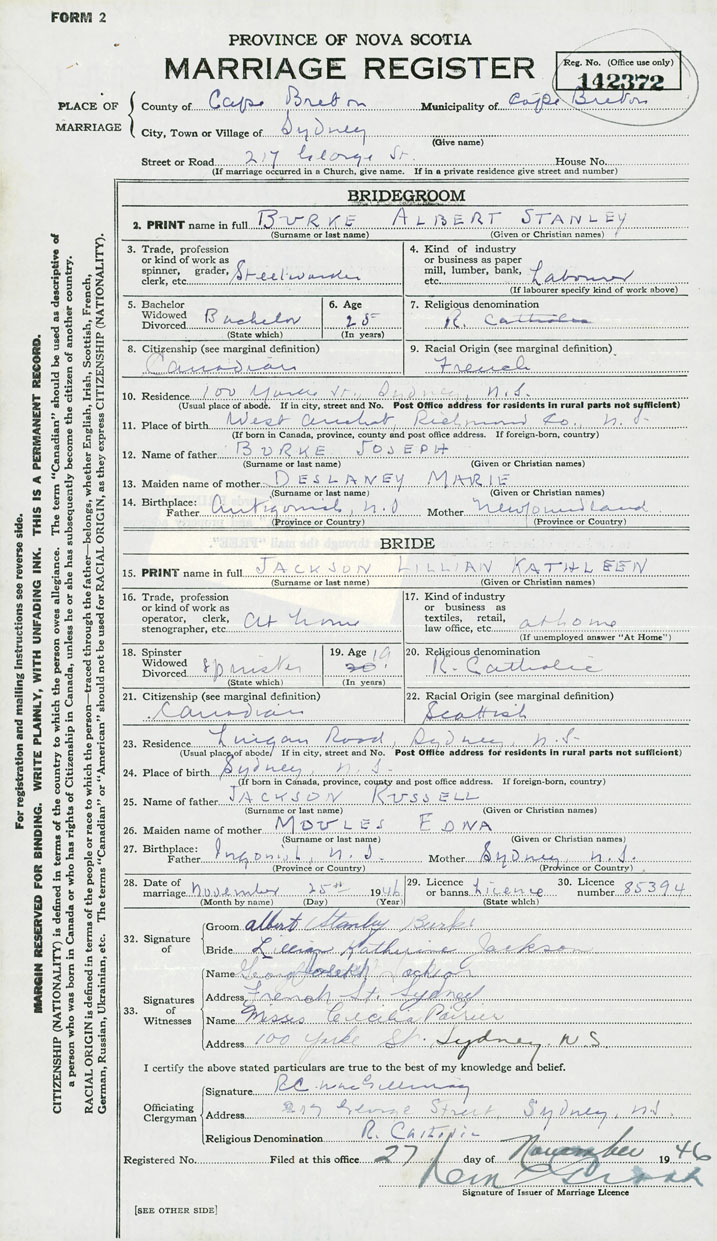 FORM 2
PROVINCE OF NOVA SCOTIA
MARRIAGE REGISTER
Reg. No. (Office use only)
142372
PLACE OF MARRIAGE
County of Cape Breton Municipality of Cape Breton
City, Town or Village of Sydney
(Give name)
Street or Road 217 George St. House No.
(If marriage occurred in a Church, give name. If in a private residence give street and number)
BRIDEGROOM
2. PRINT name in full BURKE ALBERT STANLEY
(Surname or last name) (Given or Christian names)
3. Trade, profession or kind of work as spinner, grader, clerk, etc. Steelworker
4. Kind of industry or business as paper mill, lumber, bank, etc. Labourer
(If labourer specify kind of work above)
5. Bachelor Widowed Divorced Bachelor
(State which)
6. Age 25
(In years)
7. Religious denomination
R. Catholic
8. Citizenship (see marginal definition)
Canadian
9. Racial Origin (see marginal definition)
French
10. Residence 100 Yorke St. Sydney, N.S.
(Usual place of abode. If in city, street and No. Post Office address for residents in rural parts not sufficient)
11. Place of birth West Arichat Richmond Co., N.S.
(If born in Canada, province, county and post office address. If foreign-born, country)
12. Name of father BURKE JOSEPH
(Surname or last name) (Given or Christian names)
13. Maiden name of mother DESLANEY MARIE
(Surname or last name) (Given or Christian names)
14. Birthplace: Father Antigonish, N.S Mother Newfoundland
(Province or Country) (Province or Country)
BRIDE
15. PRINT name in full JACKSON LILLIAN KATHLEEN
(Surname or last name) (Given or Christian names)
16. Trade, profession or kind of work as operator, clerk, stenographer, etc. At home
17. Kind of industry or business as textiles, retail, law office, etc. at home
(If unemployed answer "At Home")
18. Spinster Widowed Divorced Spinster
(State which)
19. Age 19
20
(In years)
20. Religious denomination
R. Catholic
21. Citizenship (see marginal definition)
Canadian
22. Racial Origin (see marginal definition)
Scottish
23. Residence Lingan Road, Sydney, N.S.
(Usual place of abode. If in city, street and No. Post Office address for residents in rural parts not sufficient)
24. Place of birth Sydney, N.S.
(If born in Canada, province, county and post office address. If foreign-born, country)
25. Name of father JACKSON RUSSELL
(Surname or last name) (Given or Christian names)
26. Maiden name of mother MOULES EDNA
(Surname or last name) (Given or Christian names)
27. Birthplace: Father Ingonish, N.S. Mother Sydney, N.S.
(Province or Country) (Province or Country)
28. Date of marriage November 25th 1946
(Month by name) (Day) (Year)
29. Licence or banns Licence
(State which)
30. Licence number 85394
32. Signature of
Groom Albert Stanley Burke
Bride Lillian Katherine Jackson
33. Signatures of Witnesses
Name Joseph Jackson
Address French St. Sydney
Name Cecilia Poirier
Address 100 Yorke St. Sydney, N.S.
I certify the above stated particulars are true to the best of my knowledge and belief.
Officiating Clergyman
Signature R.C. MacGillivray
Address 217 George Street, Sydney, N.S.
Religious Denomination R. Catholic
Registered No. Filed at this office 27 day of November 1946
Signature of Issuer of Marriage Licence
[SEE OTHER SIDE]
For registration and mailing instructions see reverse side.
MARGIN RESERVED FOR BINDING. WRITE PLAINLY, WITH UNFADING INK. THIS IS A PERMANENT RECORD.
CITIZENSHIP (NATIONALITY) is defined in terms of the country to which the person owes allegiance. The term "Canadian" should be used as descriptive of
a person who was born in Canada or who has rights of Citizenship in Canada, unless he or she has subsequently become the citizen of another country.
RACIAL ORIGIN is defined in terms of the people or race to which the person—traced through the father—belongs, whether English, Irish, Scottish, French,
German, Russian, Ukrainian, etc. The terms "Canadian" or "American" should not be used for RACIAL ORIGIN, as they express CITIZENSHIP (NATIONALITY).